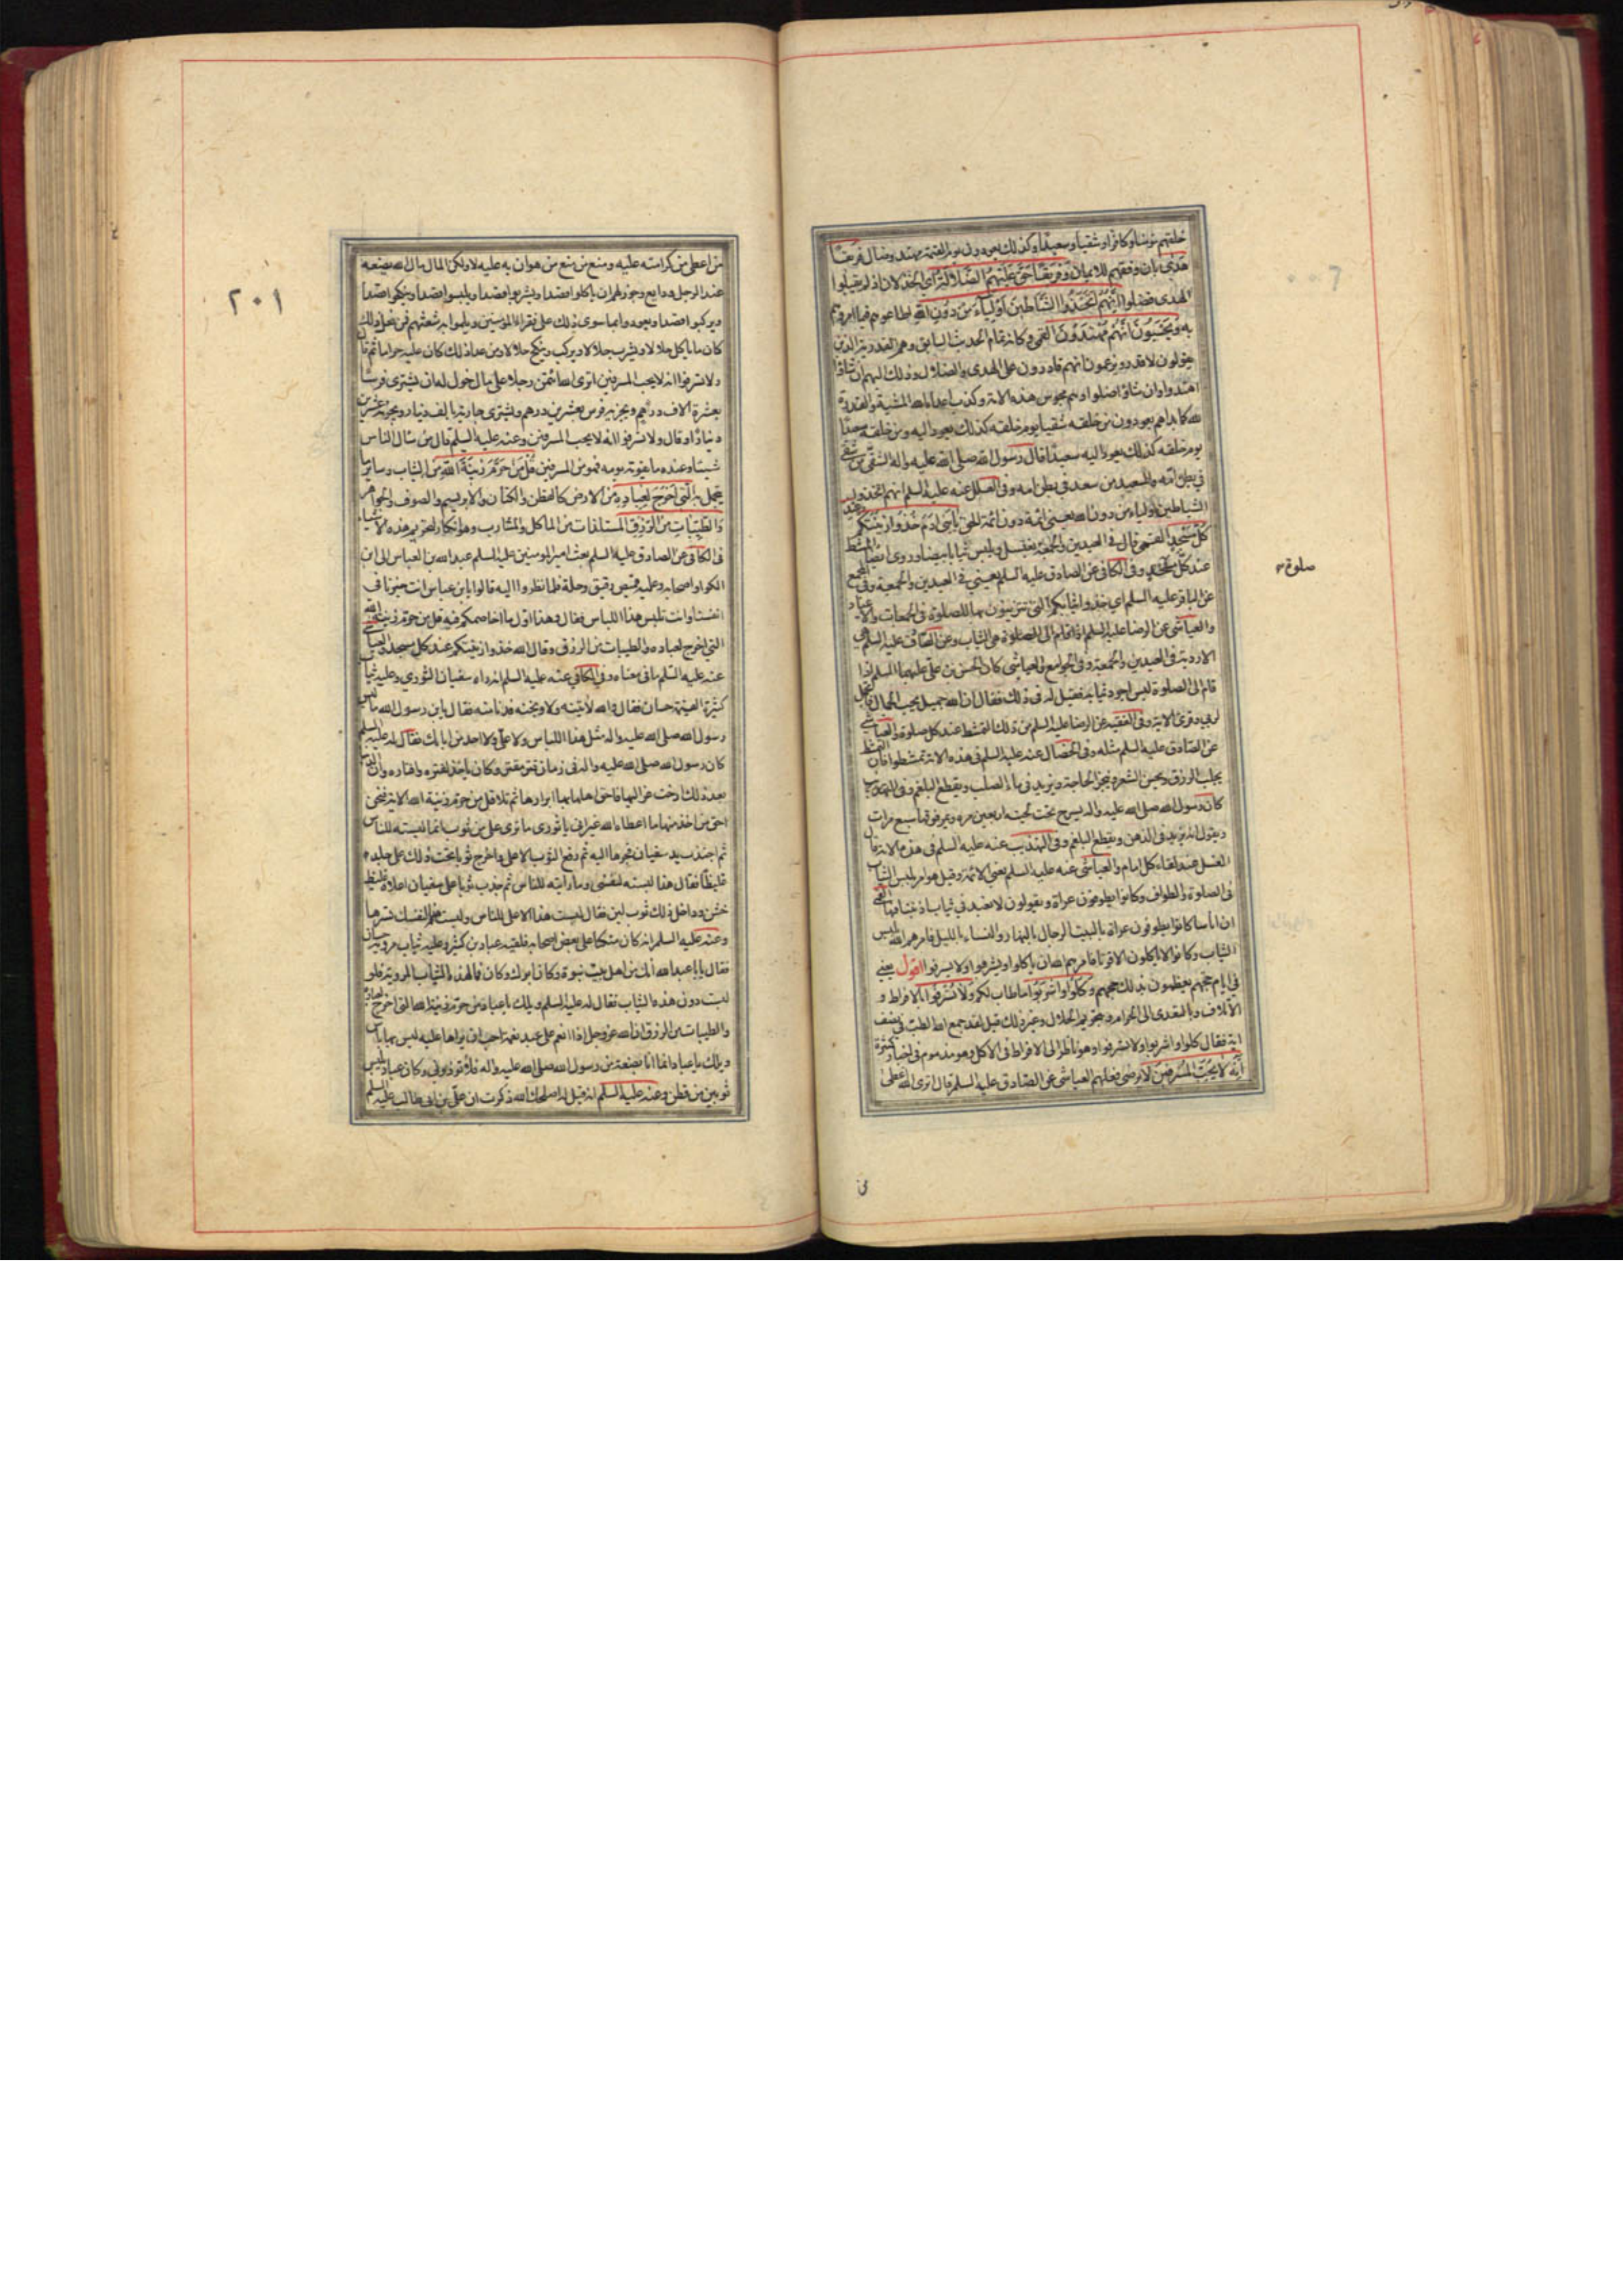 خلقهم مؤمنا وكافرا وشقيا وسعيدا وكذلك يعودون يوم القيمة مهتد وضال فريقا
هدى بان وفقهم للايمان وفريقا حق عليهم الضلالة اى الخذلان اذ لم يقبلوا
الهدى فضلوا انهم اتخذوا الشياطين اولياء من دون الله اطاعوهم فيما امروهم
به ويحسبون انهم مهتدون القمى وكانه تمام الحديث السابق وهم القدرية الذين
يقولون لا قدر ويزعمون انهم قادرون على الهدى والضلال وذلك اليهم ان شاؤا
اهتدوا وان شاؤا ضلوا وهم مجوس هذه الامة وكذب اعداء الله المشية والقدرة
لله كما بداهم يعودون من خلقه شقيا يوم خلقه كذلك يعود اليه ومن خلقه سعيدا
يوم خلقه كذلك يعود اليه سعيدا قال رسول الله صلى الله عليه واله الشقى من شقى
في بطن امه والسعيد من سعد في بطن امه وفى العلل عنه عليه السلم انهم اتخذوا
الشياطين اولياء من دون الله يعني ائمة دون ائمة الحق يا بنى ادم خذوا زينتكم عند
كل مسجد القمى قال في العيدين والجمعة يغتسل ويلبس ثيابا بيضا وروى ايضا المشط
عند كل صلوة وفى الكافى عن الصادق عليه السلم يعني في العيدين والجمعة وفي المجمع
عن الباقر عليه السلم اي خذوا ثيابكم التى تتزينون بها للصلوة في الجمعات والاعياد
والعياشى عن الرضا عليه السلم هى الثياب وعن الصادق عليه السلم هى
الاردية في العيدين والجمعة وفى الجوامع والعياشى كان الحسن بن على عليهما السلم اذا
قام الى الصلوة لبس اجود ثيابه فقيل له في ذلك فقال ان الله جميل يحب الجمال فاتجمل
لربي وقرء الاية وفى الفقيه عن الرضا عليه السلم من ذلك التمشط عند كل صلوة والعياشي
عن الصادق عليه السلم مثله وفى الخصال عنه عليه السلم في هذه الاية تمشطوا فان التمشط
يجلب الرزق ويحسن الشعر وينجز الحاجة ويزيد في ماء الصلب ويقطع البلغم
كان رسول الله صلى الله عليه واله يسرح تحت لحيته اربعين مرة ومن فوقها سبع مرات
ويقول انه يزيد في الذهن ويقطع البلغم وفى التهذيب عنه عليه السلم في هذه الاية قال
الغسل عند لقاء كل امام والعياشى عنه عليه السلم يعنى الائمة وقيل هو امر بلبس الثياب
في الصلوة والطواف وكانوا يطوفون عراة ويقولون لا نعبد في ثياب اذنبنا فيها القمى
ان اناسا كانوا يطوفون عراة بالبيت الرجال بالنهار والنساء بالليل فامرهم الله بلبس
الثياب وكانوا لا ياكلون الا قوتا فامرهم الله ان ياكلوا ويشربوا ولا يسرفوا اقول يعني
في ايام حجهم يعظمون بذلك حجهم وكلوا واشربوا ما طاب لكم ولا تسرفوا بالافراط و
الاتلاف وبالتعدى الى الحرام وبتحريم الحلال وغير ذلك قيل لقد جمع الله الطب في نصف
اية فقال كلوا واشربوا ولا تسرفوا وهو ناظر الى الافراط في الاكل وهو مذموم في اخبار كثيرة
انه لا يحب المسرفين لا يرضى فعلهم العياشى عن الصادق عليه السلم قال اترى الله اعطى
صلوة
من
٢٠١
من اعطى من كرامته عليه ومنع من منع من هوان به عليه لا ولكن المال مال الله يضعه
عند الرجل ودايع وجوز لهم ان ياكلوا قصدا ويشربوا قصدا ويلبسوا قصدا وينكحوا قصدا
ويركبوا قصدا ويعودوا بما سوى ذلك على فقراء المؤمنين ويلموا به شعثهم فمن فعل ذلك
كان ما ياكل حلالا ويشرب حلالا ويركب وينكح حلالا ومن عدا ذلك كان عليه حراما ثم قال
ولا تسرفوا انه لا يحب المسرفين اترى الله ائتمن رجلا على مال خول له ان يشترى فرسا
بعشرة الاف درهم ويجزيه فرس بعشرين درهم ويشترى جارية بالف دينار ويجزيه بعشرين
دينارا وقال ولا تسرفوا انه لا يحب المسرفين وعنه عليه السلم قال من سال الناس
شيئا وعنده ما يقوته يومه فهو من المسرفين قل من حرم زينة الله من الثياب وساير ما
يتجمل به التى اخرج لعباده من الارض كالقطن والكتان والابريسم والصوف والجواهر
والطيبات من الرزق المستلذات من الماكل والمشارب وهو انكار لتحريم هذه الاشياء
في الكافى عن الصادق عليه السلم بعث امير المومنين عليه السلم عبد الله بن العباس الى ابن
الكوا واصحابه وعليه قميص رقيق وحلة فلما نظروا اليه قالوا يا بن عباس انت خيرنا في
انفسنا وانت تلبس هذا اللباس فقال وهذا اول ما اخاصمكم فيه قل من حرم زينة الله
التي اخرج لعباده والطيبات من الرزق وقال الله خذوا زينتكم عند كل مسجد والعياشى
عنه عليه السلم ما في معناه وفى الكافي عنه عليه السلم انه راه سفيان الثوري وعليه ثياب
كثيرة القيمة حسان فقال والله لاتينه ولاوبخنه فدنا منه فقال يا بن رسول الله ما لبس
رسول الله صلى الله عليه واله مثل هذا اللباس ولا على ولا احد من ابائك فقال له عليه السلم
كان رسول الله صلى الله عليه واله في زمان قتر مقتر وكان ياخذ لقتره واقتاره وان الدنيا
بعد ذلك ارخت عزاليها فاحق اهلها بها ابرارها ثم تلا قل من حرم زينة الله الاية فنحن
احق من اخذ منها ما اعطاه الله غير انى يا ثوري ما ترى على من ثوب انما لبسته للناس
ثم اجتذب يد سفيان فجرها اليه ثم رفع الثوب الاعلى واخرج ثوبا تحت ذلك على جلده
غليظا فقال هذا لبسته لنفسى وما رايته للناس ثم جذب ثوبا على سفيان اعلاه غليظ
خشن وداخل ذلك ثوب لين فقال لبست هذا الاعلى للناس ولبست هذا لنفسك تسرها
وعنه عليه السلم انه كان متكئا على بعض اصحابه فلقيه عباد بن كثير وعليه ثياب مروية حسان
فقال يا ابا عبد الله انك من اهل بيت نبوة وكان ابوك وكان فما لهذه الثياب المروية فلو
لبست دون هذه الثياب فقال له عليه السلم ويلك يا عباد من حرم زينة الله التى اخرج لعباده
والطيبات من الرزق ان الله عز وجل اذا انعم على عبد نعمة احب ان يراها عليه ليس بها باس
ويلك يا عباد انما انا بضعة من رسول الله صلى الله عليه واله فلا تؤذوني وكان عباد يلبس
ثوبين من قطن وعنه عليه السلم انه قيل له اصلحك الله ذكرت ان على بن ابي طالب عليه السلم